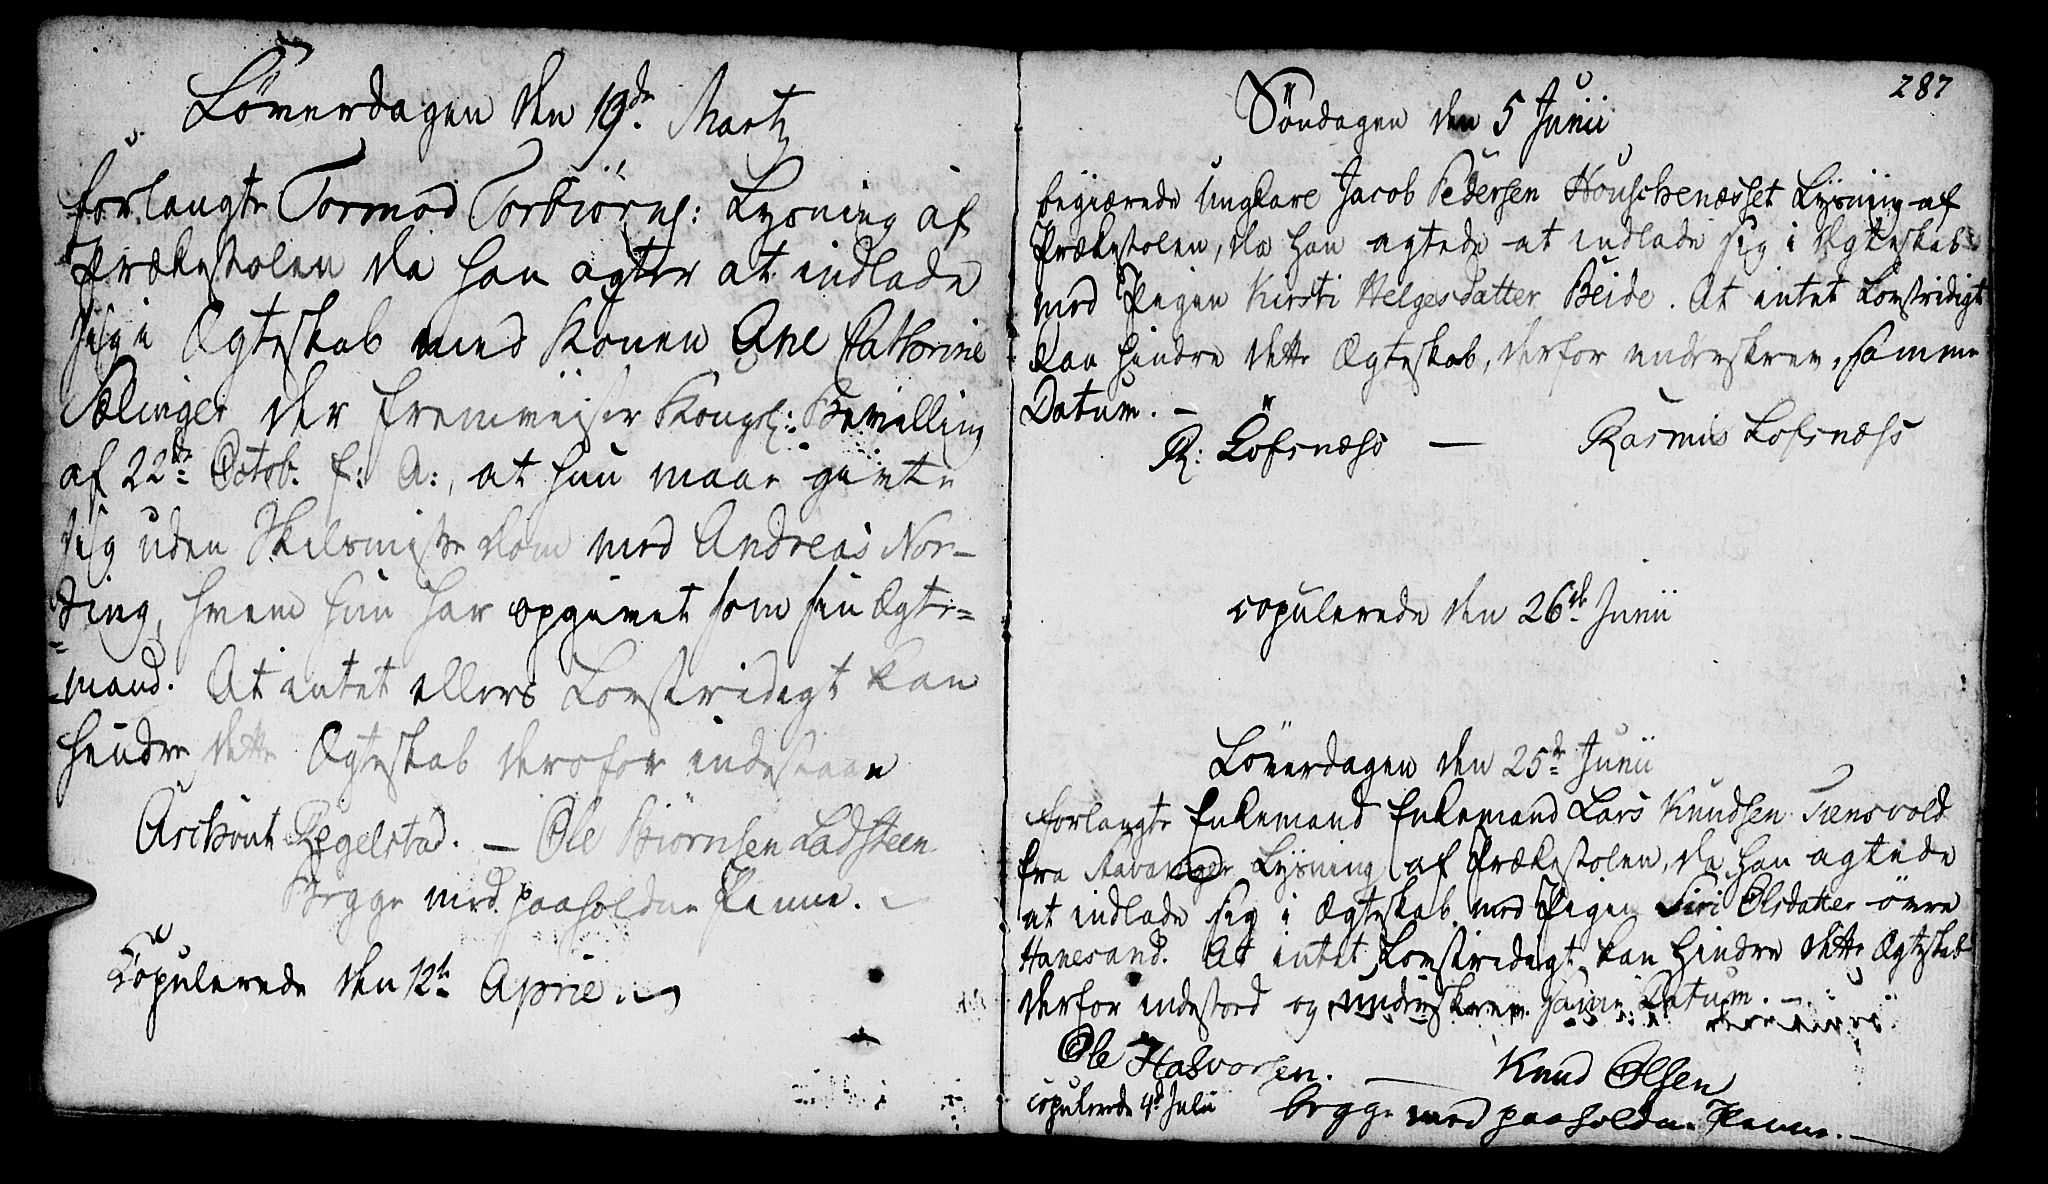 Löverdagen den 19de Martz
forlangte Tormod Torbiörns: Lysning af
Prækestolen da han agter at indlade
sig i Ægteskab med Konen Ane Cathrine
Sælinger der fremviiser Kongl: Bevilling
af 22de Octob. f: A:, at hun maae givte
sig uden Skilsmisse dom med Andreas Nor-
ding, hvem hun har opgivet som sin Ægte=
=mand. At intet ellers Lovstridigt kan
hindre dette Ægteskab derofor indestaae
Aschout Egelstad. — Ole Biörnsen Ladsteen
Begge med paaholdne Penne.
Copulerede den 12te Aprie.
287
Söndagen den 5 Junii
begiærede Ungkare Jacob Pedersen Houschenæsset Lysning af
Prækestolen, da han agtede at indlade sig i Ægteskab
med Pigen Kirsti Helgesdatter Beide. At intet Lovstridigt
kan hindre dette Ægteskab, derfor underskrev, samme
Datum. —
R: Löfsnæss — Rasmus Lofsnæss
copulerede den 26de Junii
Löverdagen den 25de Junii
forlangte Enkemand Enkemand Lars Knudsen Tiensvold
fra Stavanger Lysning af Prækestolen, da han agtede
at indlade sig i Ægteskab med Pigen Siri Olsdatter övre
Hanesand. At intet Lovstridigt kan hindre dette Ægteskab
derfor indestod og underskrev samme Datum. —
Ole Halvorsen. — Knud Olsen
copulerede 4d Julii begge med paaholdne Penne. —